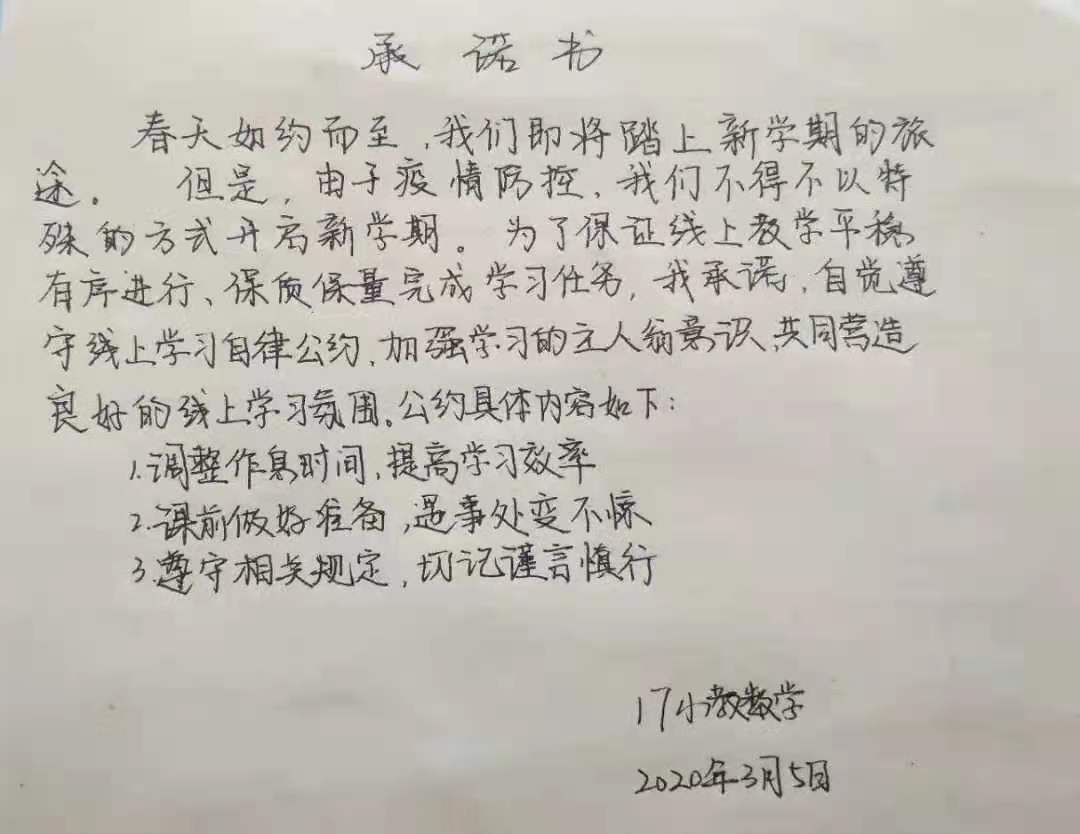 承诺书
春天如约而至,我们即将踏上新学期的旅
途。 但是,由于疫情防控,我们不得不以特
殊的方式开启新学期。为了保证线上教学平稳
有序进行、保质保量完成学习任务,我承诺,自觉遵
守线上学习自律公约,加强学习的主人翁意识,共同营造
良好的线上学习氛围。公约具体内容如下:
1.调整作息时间,提高学习效率
2.课前做好准备,遇事处变不惊
3.遵守相关规定,切记谨言慎行
17小教数学
2020年3月5日